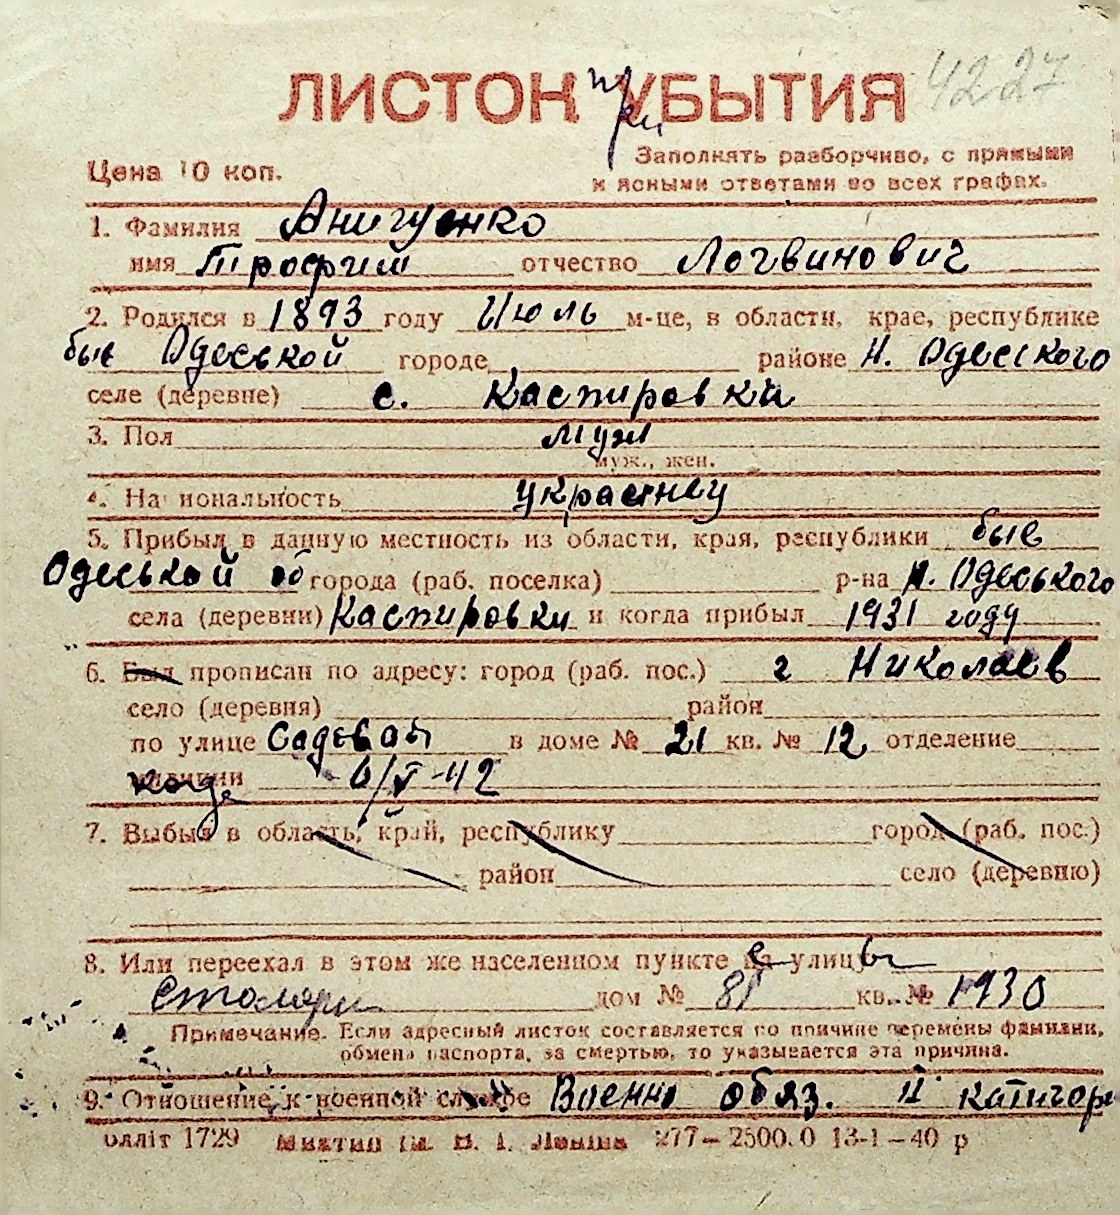 4227
ЛИСТОК при УБЫТИЯ
Цена 10 коп.
Заполнять разборчиво, с прямыми
и ясными ответами во всех графах.
1. Фамилия Анигуенко
имя Трофим отчество Логвинович
2. Родился в 1893 году Июль м-це, в области, крае, республике
быв Одеськой городе районе Н. Одесского
селе (деревне) с. Каспировки
3. Пол муж
муж., жен.
4. Национальность
5. Прибыл в данную местность из области, края, республики быв
Одеськой об города (раб. поселка) р-на Н. Одеського
села (деревни) Каспировки и когда прибыл 1931 году
6. Был прописан по адресу: город (раб. пос.) г Николаев
село (деревня) район
по улице Садовая в доме № 21 кв. № 12 отделение
когда 6/V-42
7. Выбыл в область, край, республику город (раб. пос.)
район село (деревню)
8. Или переехал в этом же населенном пункте с улицы
дом № 81 кв. № 1930
Примечание. Если адресный листок составляется по причине перемены фамилии,
обмена паспорта, за смертью, то указывается эта причина.
9. Отношение к военной службе Военно обяз. II катигор
Оолліт 1729 277–2500.0 13-1–40 р